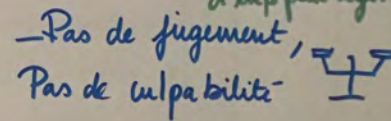 - Pas de jugement,
Pas de culpabilité